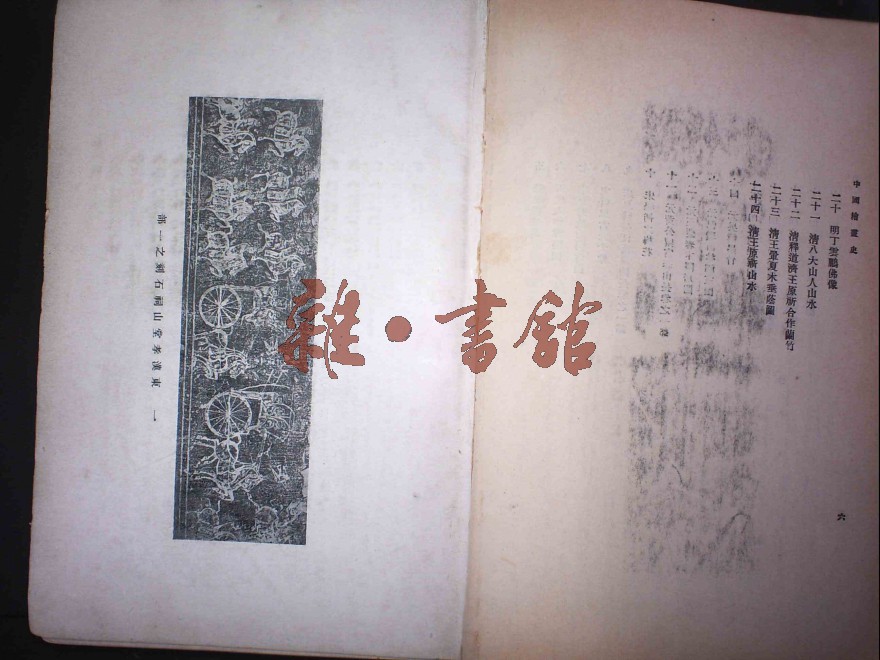 中國繪畫史
二十 明丁雲鵬佛像
二十一 清八大山人山水
二十二 清釋道濟王原祁合作蘭竹
二十三 清王翬夏木垂蔭圖
二十四 清王原祁山水
六
一 東漢孝堂山祠石刻之一部
雜·書館